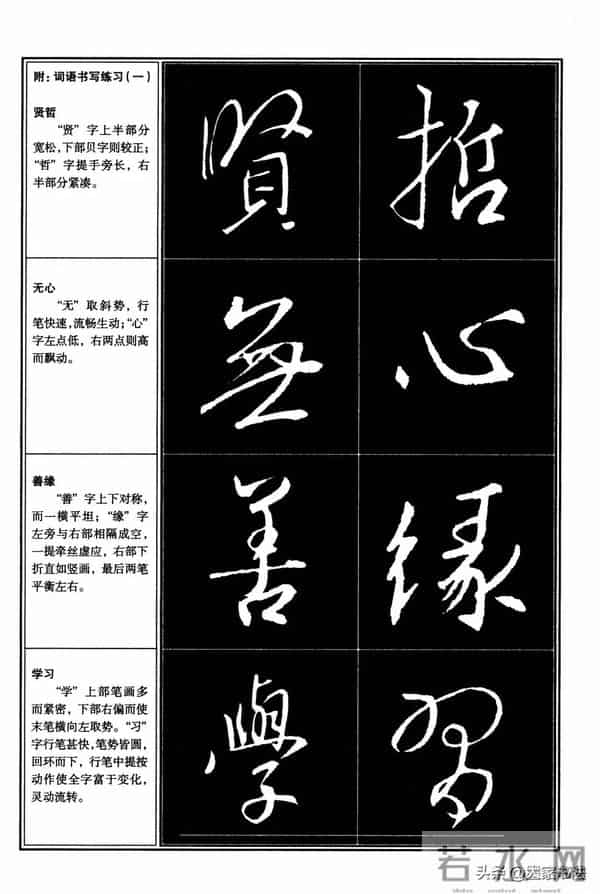 附：词语书写练习（一）
贤哲
“贤”字上半部分
宽松，下部贝字则较正；
“哲”字提手旁长，右
半部分紧凑。
賢哲
无心
“无”取斜势，行
笔快速，流畅生动；“心”
字左点低，右两点则高
而飘动。
無心
善缘
“善”字上下对称，
而一横平坦；“缘”字
左旁与右部相隔成空，
一提牵丝虚应，右部下
折直如竖画，最后两笔
平衡左右。
善缘
学习
“学”上部笔画多
而紧密，下部右偏而使
末笔横向左取势。“习”
字行笔甚快，笔势皆圆，
回环而下，行笔中提按
动作使全字富于变化，
灵动流转。
學習
若水网
头条@